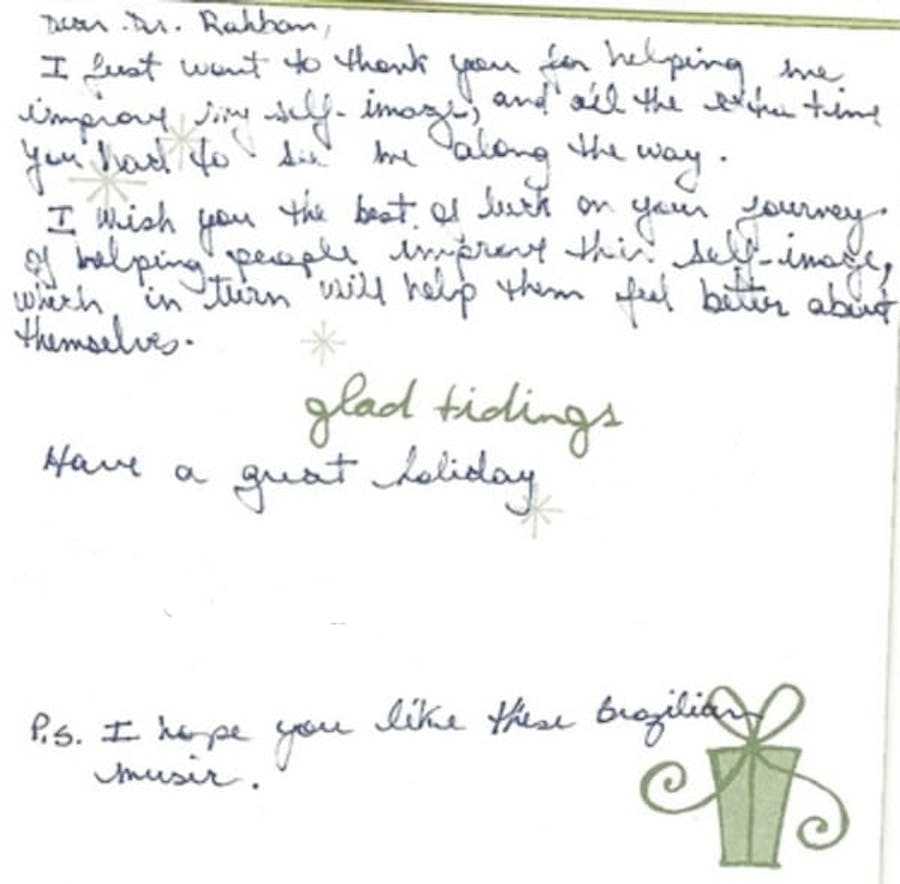 Dear Dr. Rahban,
I just want to thank you for helping me
improve my self-image, and all the extra time
you had to see me along the way.
I wish you the best of luck on your journey
of helping people improve their self-image,
which in turn will help them feel better about
themselves.
glad tidings
Have a great holiday
P.s. I hope you like these brazilian
music.